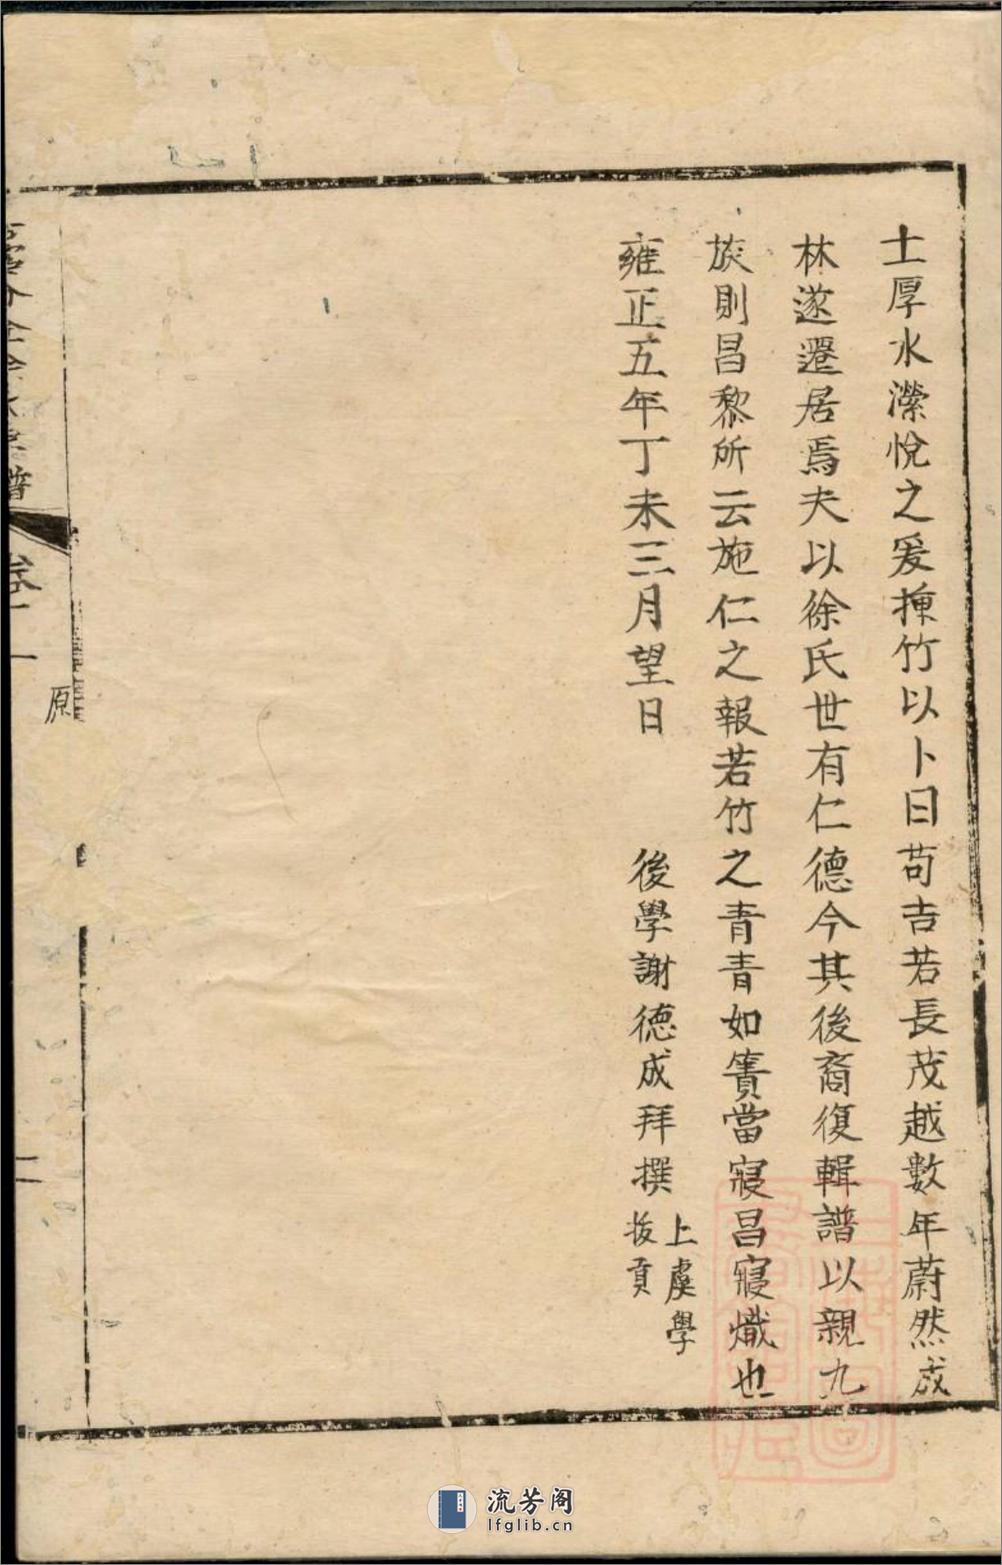 土厚水瀠悅之爰揷竹以卜曰苟吉若長茂越數年蔚然成
林遂遷居焉夫以徐氏世有仁德今其後裔復輯譜以親九
族則昌黎所云施仁之報若竹之青青如簀當寢昌寢熾也
雍正五年丁未三月望日
後學謝德成拜撰
上虞學
拔貢
譜
卷一
原
二
流芳阁
lfglib.cn